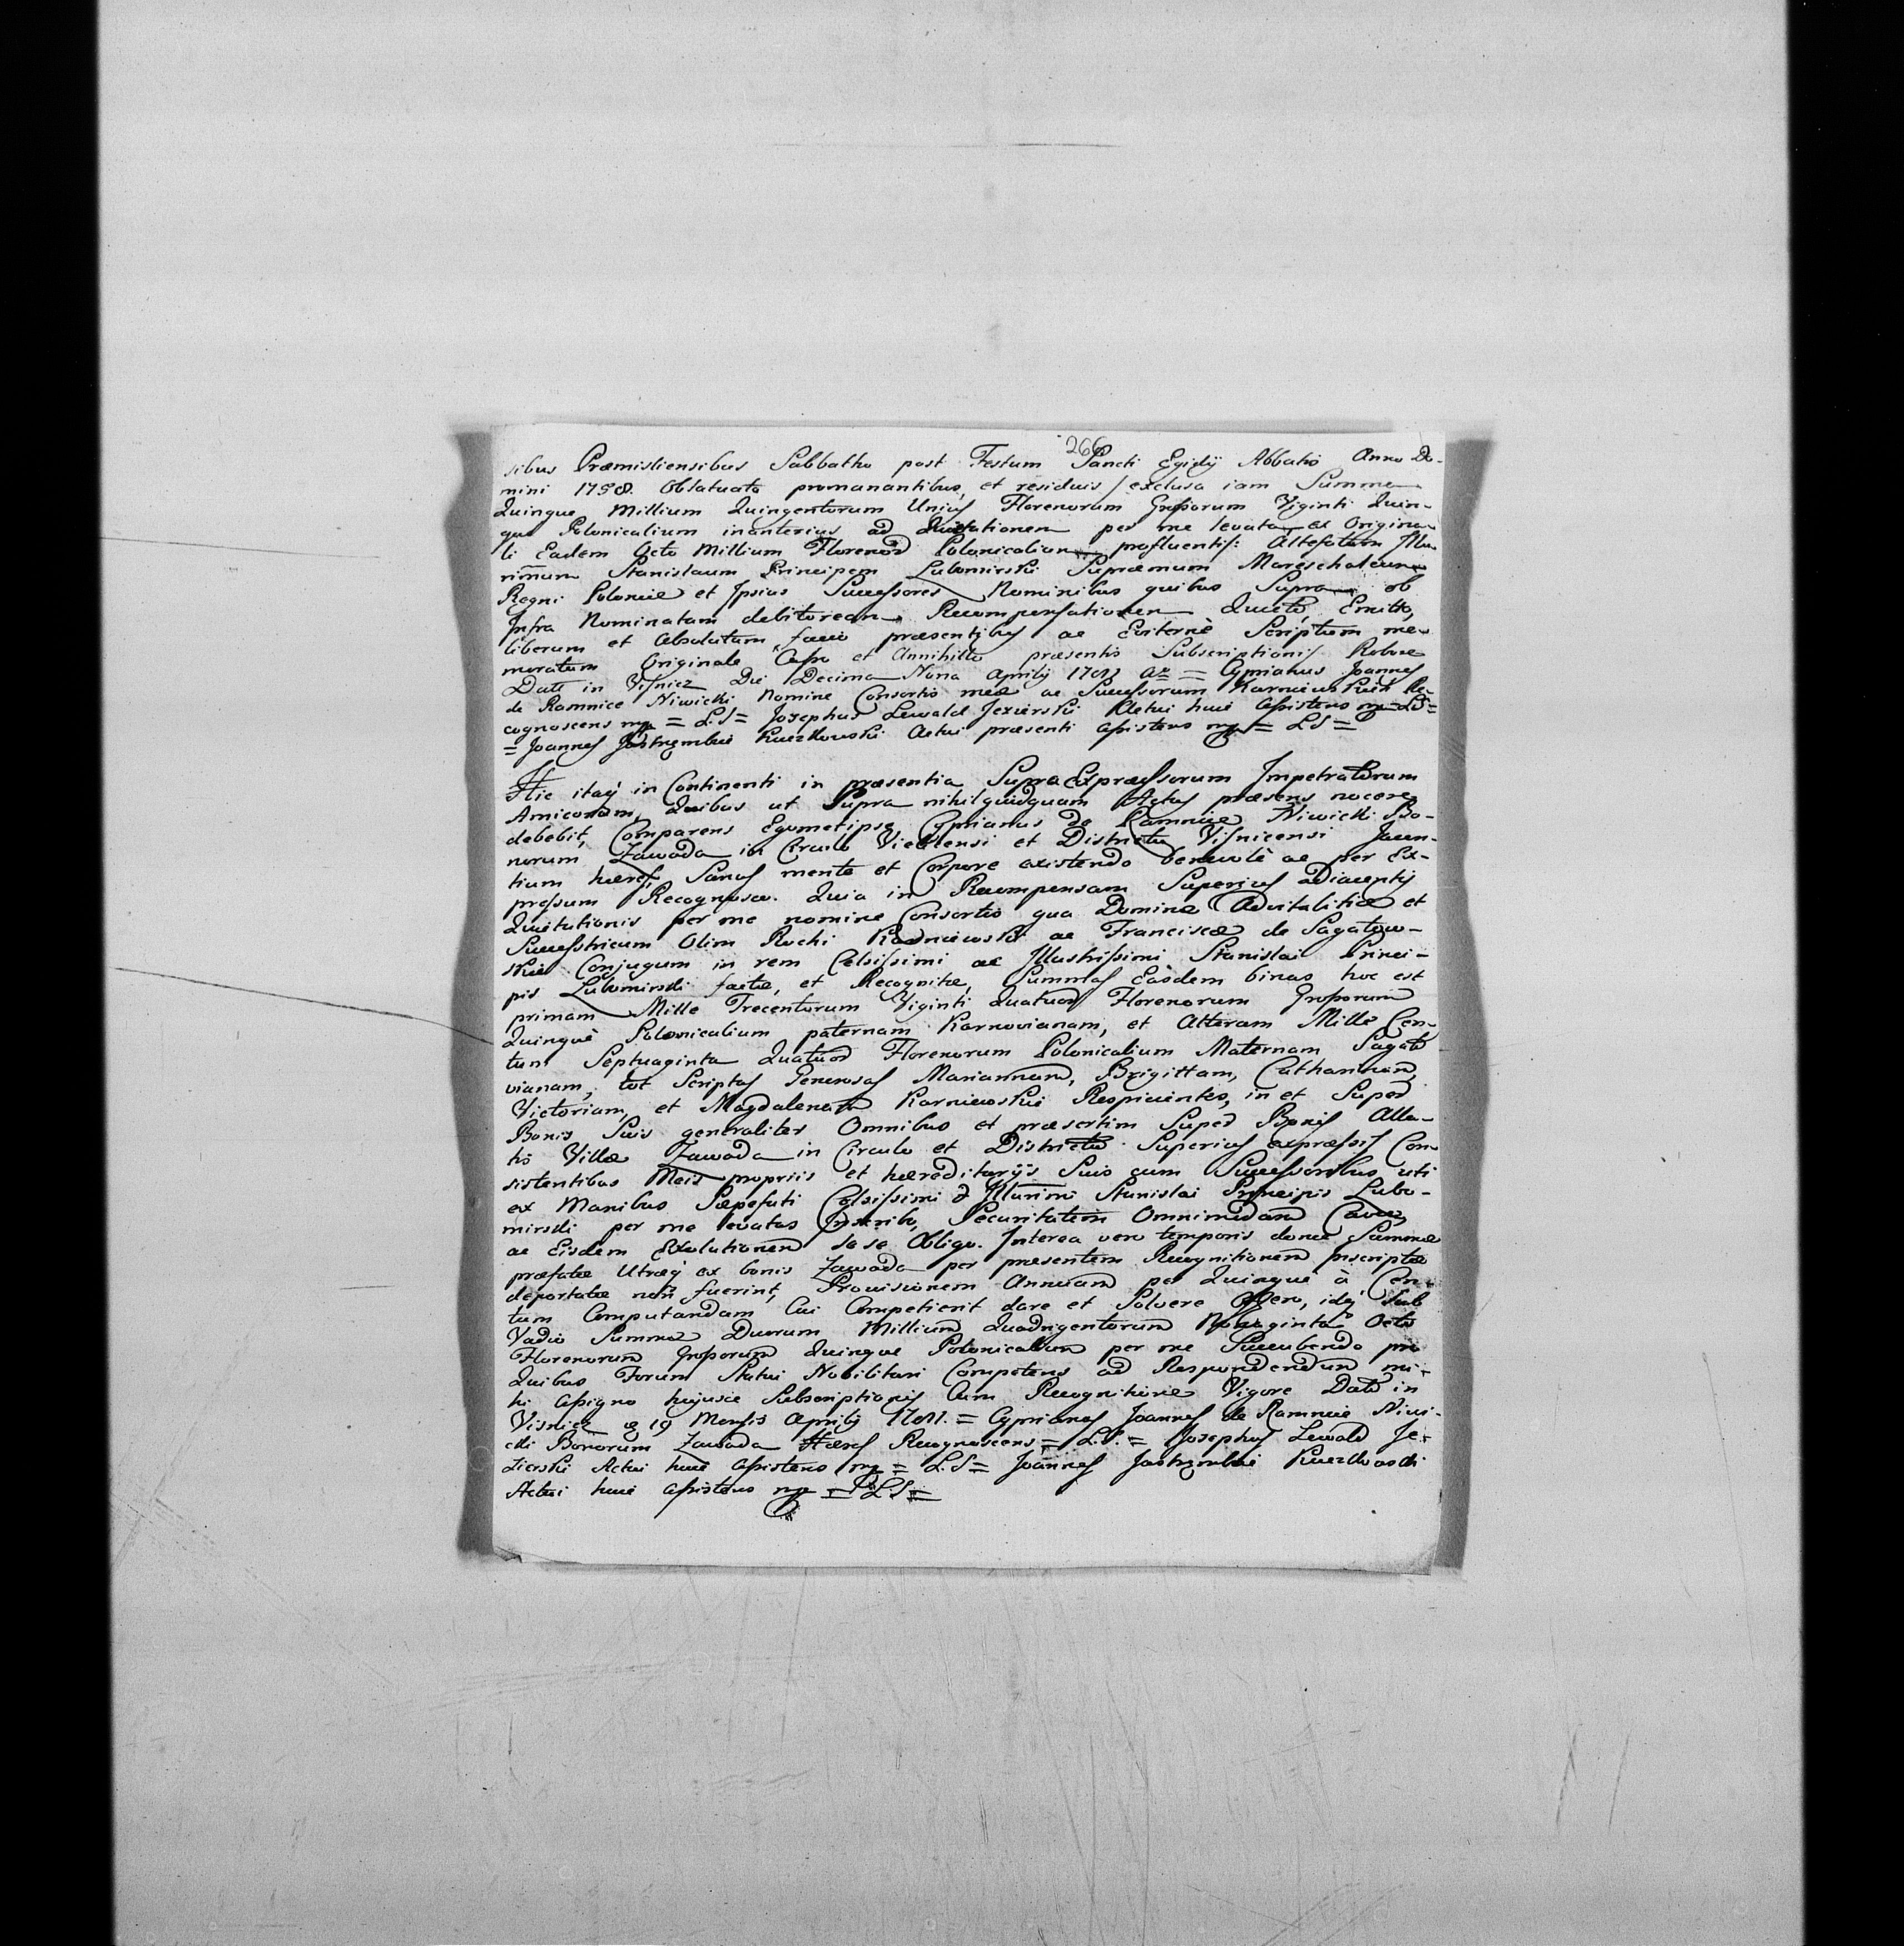 266
sibus Præmisliensibus Sabbatho post Festum Sancti Egidij Abbatis Anno Do-
mini 1758. Oblatuato promanantibus, et residuis / exclusa iam Summa
Quinque Millium Quingentorum Unius Florenorum Grossorum Viginti Quin-
que Polonicalium inanterius ad Quietationem per me levata ex Origina-
li Eadem Octo Millium Florenor Polonicalium profluentis: Altefatum Illu-
rimum Stanislaum Principem Lubomirski Supræmum Mareschalcum
Regni Poloniæ et Ipsius Successores Nominibus quibus Supra ob
Infra Nominatam debitoream Recompensationem Quieto, Emitto,
liberum et Absolutum facio præsentibus ac Eviternè Scriptum me-
moratum Originale Casso et Annihillo præsentis Subscriptionis Robore
Datt in Visnicz Die Decima Nona Aprilij = Cyprianus Joannes
de Ramnice Niwicki Nomine Consortis meæ ac Successorum Karniewskich Re-
cognoscens mp = LS = Josephus Lewald Jezierski Actui huic Assistens mp = LS =
= Joannes Jastrzembiec Kuczkowski Actui præsenti Assistens mp = LS =
Hic itaq in Continenti in præsentia Supra Expræssorum Impetratorum
Amicorum, Quibus ut Supra nihil quidquam Actus præsens nocere
debebit, Comparens Egometipse Cyprianus de Ramnice Niwicki Bo-
norum Zawada in Circulo Vielicensi et Districtu Visnicensi Jacen-
tium hæres, Sanus mente et Corpore existendo benevolè ac per Ex-
pressum Recognosco. Quia in Recompensam Superius Adiacentis
Quietationis per me nomine Consortis qua Domina Advitalitia et
Successtricum Olim Rochi Karniewski ac Franciscæ de Sagatow-
skie Conjugum in rem Celsissimi ac Illustrissimi Stanislai Princi-
pis Lubomirski factæ, et Recognitæ, Summas Easdem binas hoc est
primam Mille Trecentorum Viginti Quatuor Florenorum Grossorum
Quinque Polonicalium paternam Karnovianam, et Alteram Mille Cen-
tum Septuaginta Quatuor Florenorum Polonicalium Maternam Sagato
vianam, tot Scriptas Generosas Mariannam, Brigittam, Catharinam,
Victoriam, et Magdalenam Karniewskie Respicientes, in et Super
Bonis Suis generaliter Omnibus et præsertim Super Bonis Alla-
tis Villæ Zawada in Circulo et Districtu Superius expræssis Con-
sistentibus Meis propriis et hæreditarijs Suis cum Successoribus uti
ex Manibus Sæpefati Celsissimi & Illurimi Stanislai Principis Lubo-
mirski per me levatas Inscribo, Securitatem Omnimodam Caveo
ac Eisdem Exolutionem se se Obligo. Interea vero temporis donec Summæ
præfatæ Utræq ex bonis Zawada per præsentem Recognitionem Inscriptæ
deportatæ non fuerint, Provisionem Annuam per Quinque à Cen-
tum Computandam Cui Competierit dare et Solvere Offero, idq Sub
Vadio Summæ Duorum Millium Quadrigentorum Nonaginta Octo
Florenorum Grossorum Quinque Polonicalium per me Succubendo pro
Quibus Forum Statui Nobilitari Competens ad Respondendum mi-
hi Assigno hujusce Subscriptionis Cum Recognitione Vigore Datt in
Visnicz 19 Mensis Aprilij 1781. = Cyprianus Joannes de Ramnice Niwi-
cki Bonorum Zawada Hæres Recognoscens = L.S. = Josephus Lewald Je-
zierski Actui huic Assistens mp = L.S = Joannes Jastrzembiec Kuczkowski
Actui huic Assistens mp = LS =